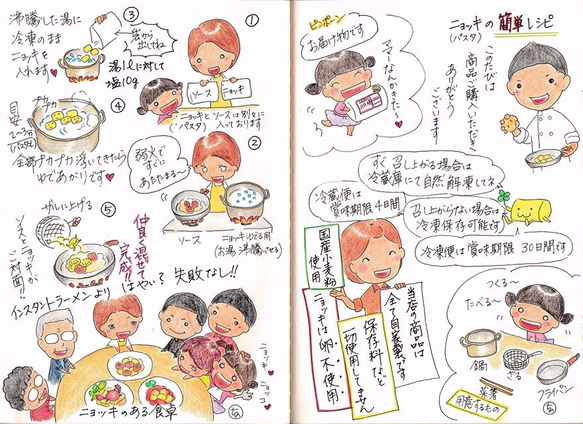 ニョッキの簡単レシピ
(パスタ)
このたびは
商品ご購入いただき
ありがとう
ございます
ピンポーン
お届け物です
ママーなんかきた〜♥
すぐ召し上がる場合は
冷蔵庫にて自然解凍してネ
召し上がらない場合は
冷凍保存可能です
冷凍便は賞味期限30日間です
冷蔵便は
賞味期限4日間
国産小麦粉
使用
ニョッキは卵不使用
保存料など
一切使用してません
当店の商品は
全て自家製です
つくる〜
たべる〜
鍋
ざる
菜箸
フライパン
用意するもの
①
ソース
ニョッキ
ニョッキとソースは別々に
(パスタ)
入っております
②
弱火で
すぐに
あたたまる〜
ソース
ニョッキゆでる用
(お湯沸騰させる)
③
沸騰した湯に
冷凍のまま
ニョッキを
入れます♥
袋から
出してね
湯1ℓに対して
塩10g
④
目安
2〜3分
プカプカ
全部プカプカ浮いてきたら
ゆであがりです♥
⑤
ザルに上げる
ソースとニョッキが
ご対面!!
仲良く混ぜて
完成!!
はやい?失敗なし!!
インスタントラーメンより
ニョッキ
ニョッコ
ニョッキのある食卓